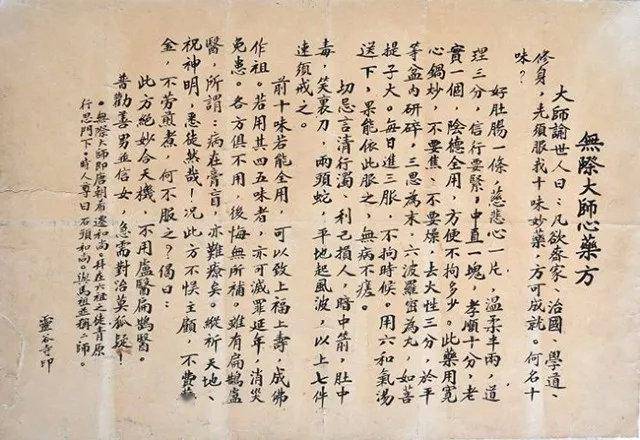 無際大師心藥方
大師諭世人曰：凡欲齊家、治國、學道、
修身，先須服我十味妙藥，方可成就。何名十
味？
好肚腸一條，慈悲心一片，溫柔半兩，道
理三分，信行要緊，中直一塊，孝順十分，老
實一個，陰德全用，方便不拘多少。此藥用寬
心鍋炒，不要焦、不要燥，去火性三分，於平
等盆內研碎，三思為末，六波羅密為丸，如菩
提子大。每日進三服，不拘時候。用六和氣湯
送下，果能依此服之，無病不瘥。
切忌言清行濁、利己損人，暗中箭，肚中
毒，笑裏刀，兩頭蛇，平地起風波，以上七件
速須戒之。
前十味若能全用，可以致上福上壽，成佛
作祖。若用其四五味者，亦可滅罪延年，消災
免患。各方俱不用，後悔無所補。雖有扁鵲盧
醫，所謂：病在膏肓，亦難療矣。縱祈天地、
祝神明，悉徒然哉！况此方不悮主顧，不費藥
金，不勞煎煮，何不服之？偈曰：
此方絕妙合天機，不用盧醫扁鵲醫。
普勸善男並信女，急需對治莫狐疑！
。無際大師即唐朝希遷和尚。拜在六祖之徒青原
行思門下。時人尊曰石頭和尚。與馬祖並稱二師。
靈谷寺印